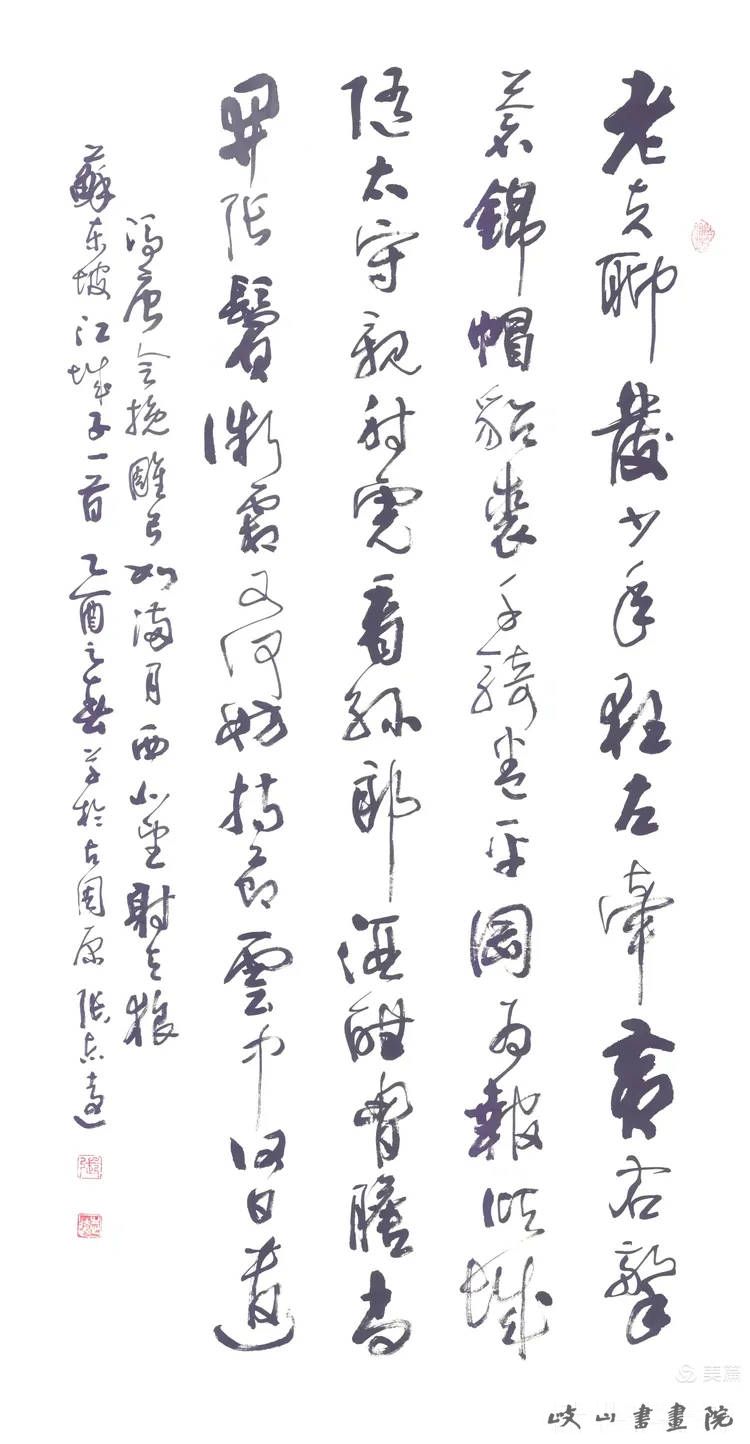 老夫聊發少年狂左牽黃右擎
蒼錦帽貂裘千騎卷平岡為報傾城
隨太守親射虎看孫郎酒酣胸膽尚
開張鬢微霜又何妨持節雲中何日遣
馮唐會挽雕弓如滿月西北望射天狼
蘇東坡江城子一首 乙酉之春草於古周原 張志
美篇
岐山書畫院